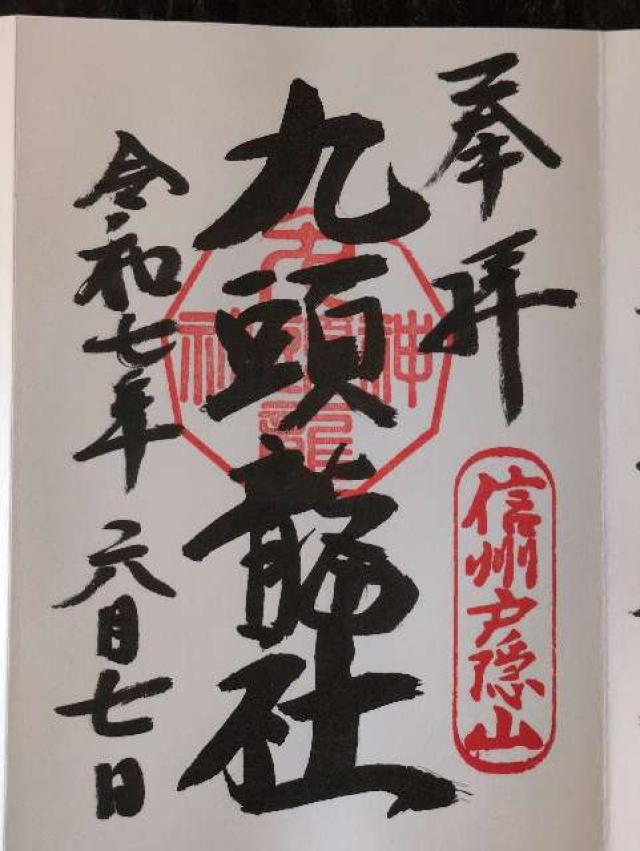 奉拝
信州戸隠山
九頭龍社
令和七年六月七日